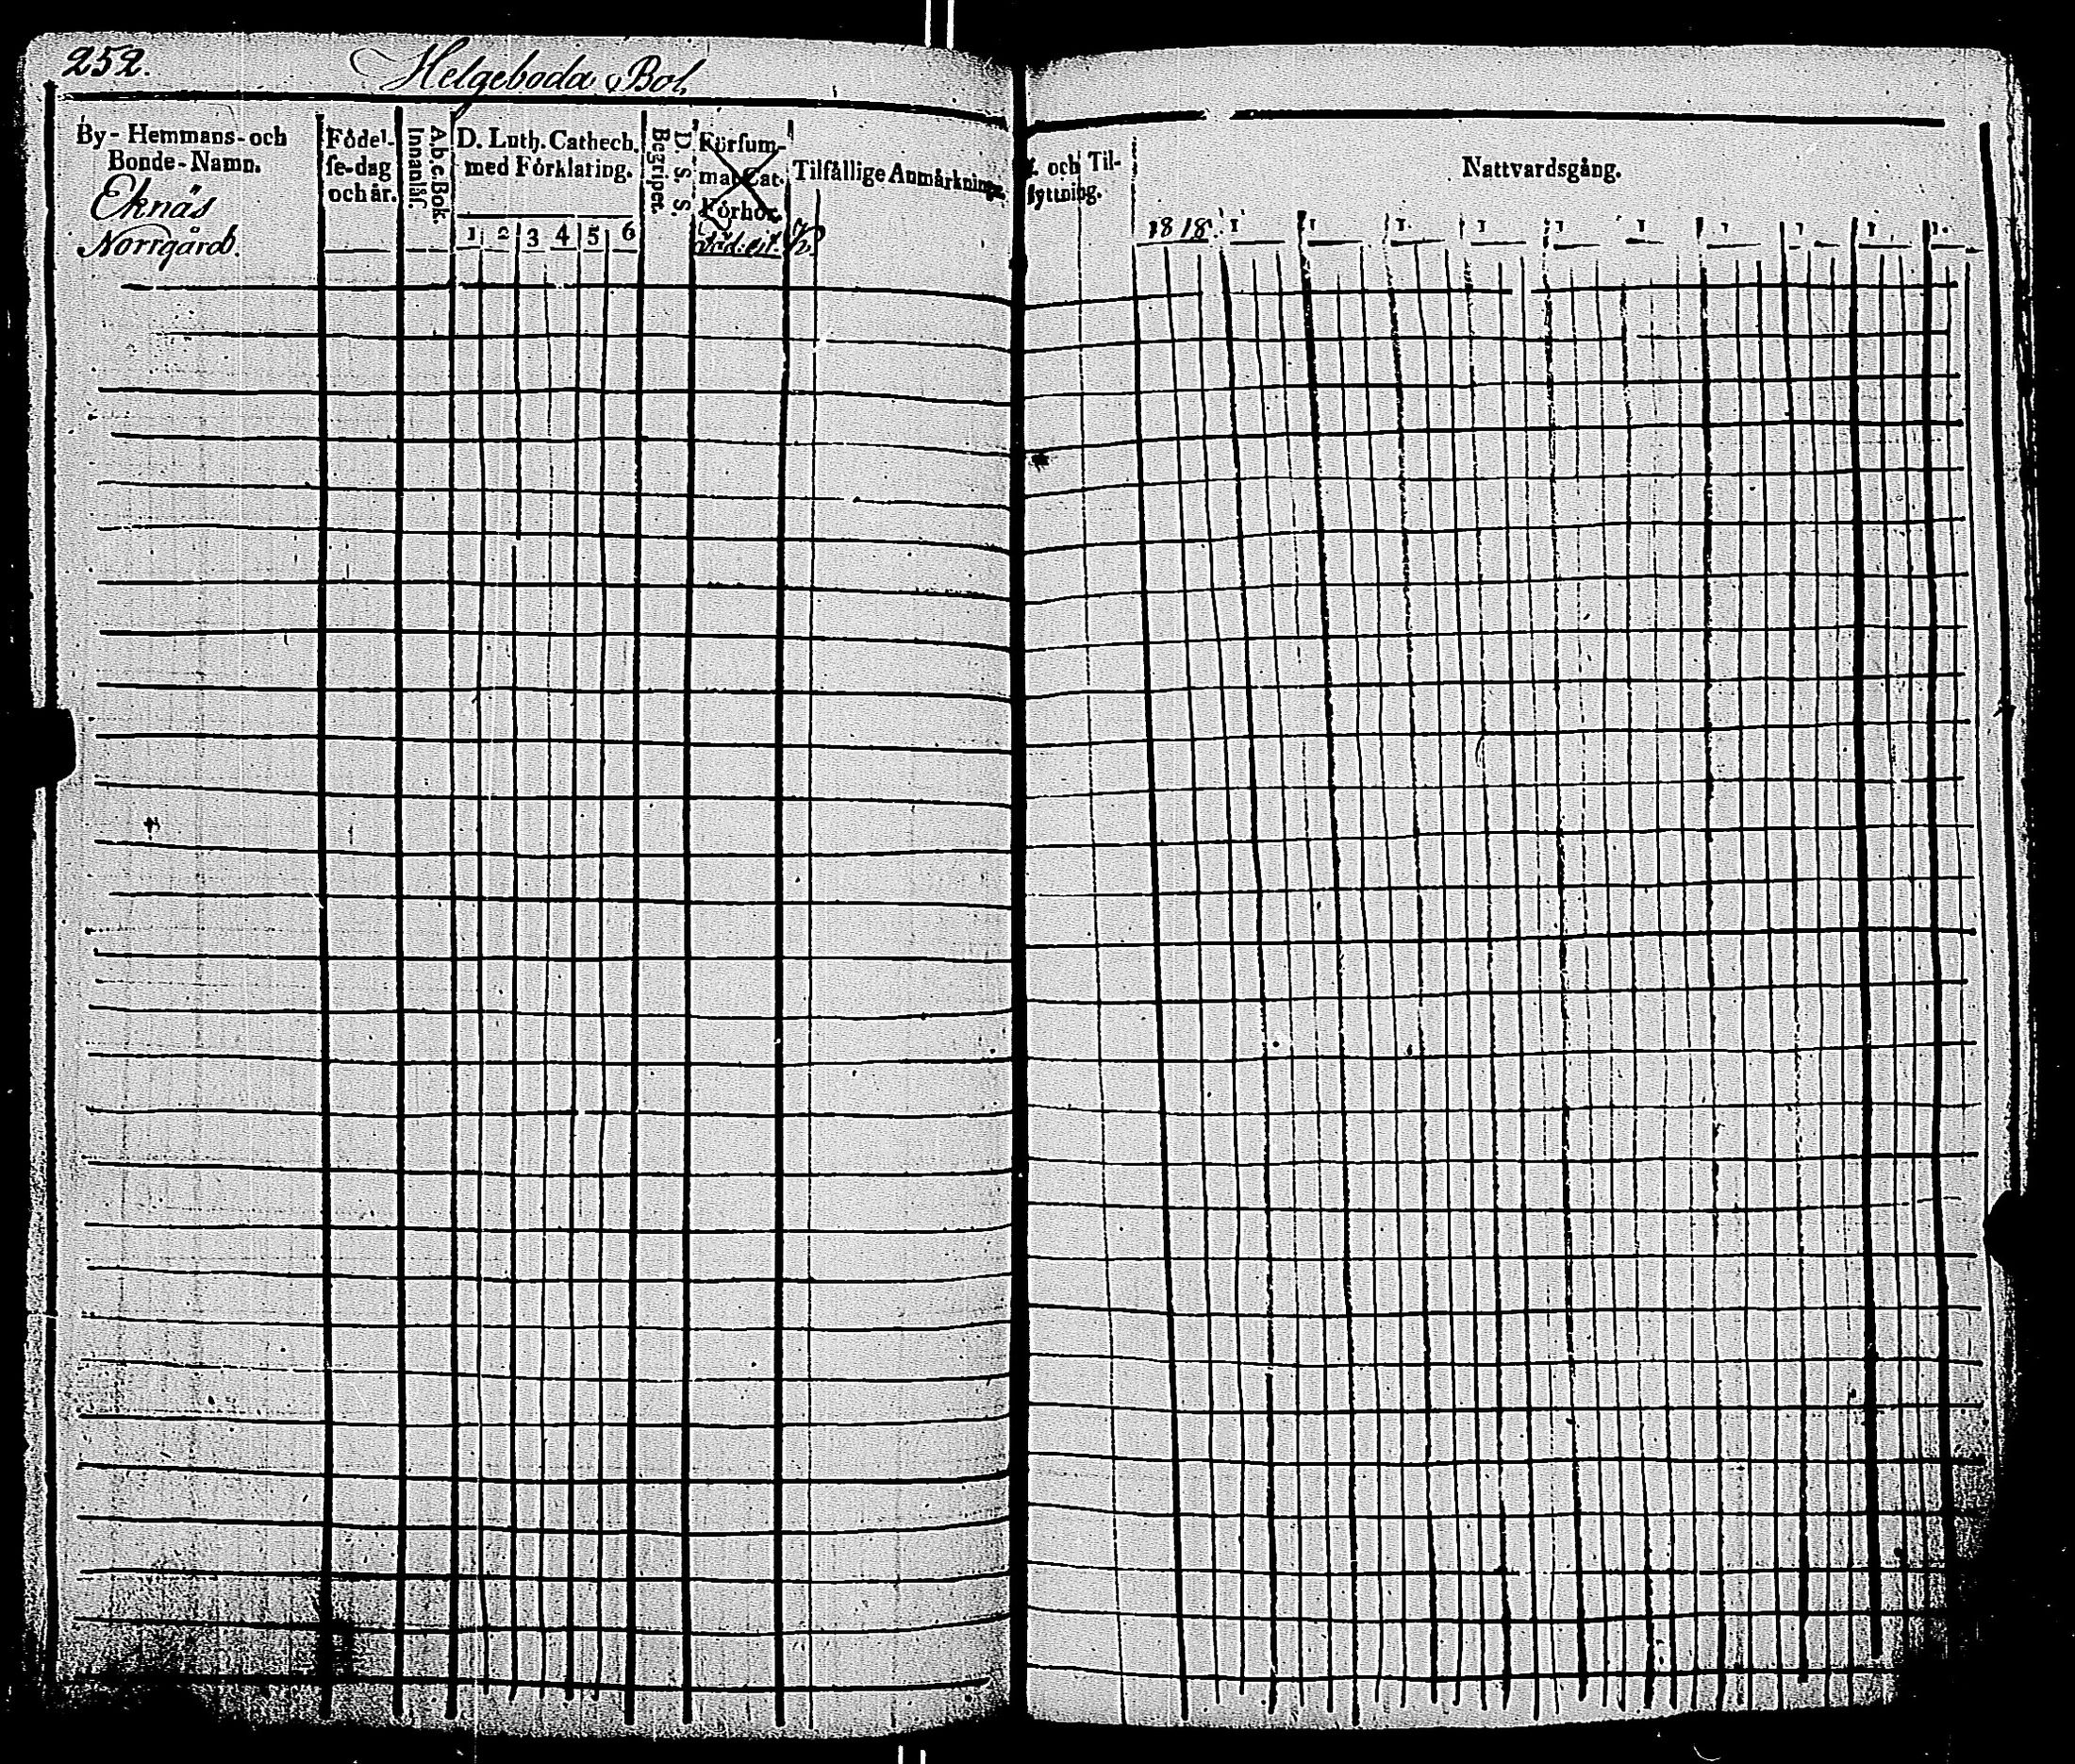 252.
Helgeboda Bol,
By - Hemmans - och
Bonde - Namn.
Eknäs
Norrgård.
Födel-
se-dag
och år.
A.b.c.Bok.
Innanläs.
D. Luth. Cathech.
med Förklaring.
1 2 3 4 5 6
D. S. S.
Begripet.
Försum-
mat Cat.
Förhör.
Tilfällige Anmärkning.
och Til-
flyttning.
Nattvardsgång.
1818. 1 1 1 1 1 1 1 1 1 1